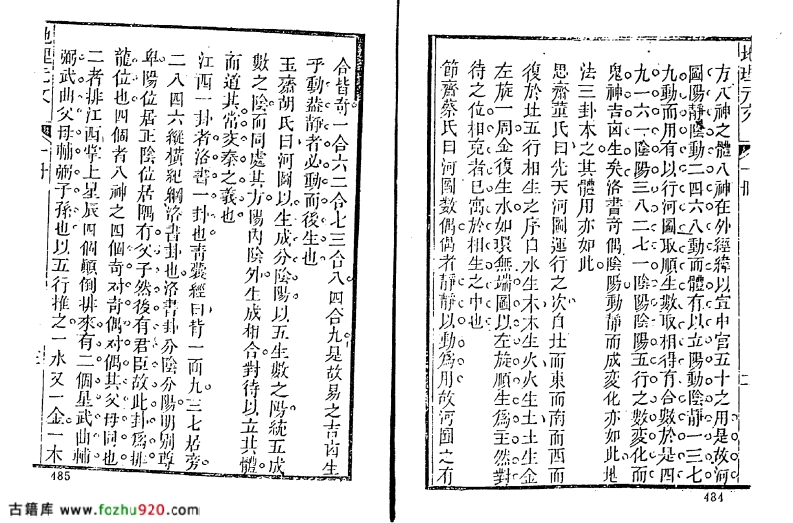 方八神之體八神在外經緯以宣中宮五十之用是故河
圖陽靜陰動二四六八動而體有以立陽動陰靜一三七
九動而用有以行河圖取順生數取相得有合數於是四
九一六一陰陽三八二七一陰陽陰陽五行之數變化而
鬼神吉凶生矣洛書奇偶陰陽動靜而成変化亦如此地
法三卦本之其體用亦如此
思齋董氏曰先天河圖運行之次自北而東而南而西而
復於北五行相生之序自水生木木生火火生土土生金
左旋一周金復生水如環無端圖以左旋順生為主然對
待之位相克者已寓於相生之中也
節齋蔡氏曰河圖數偶偶者靜靜以動為用故河圖之有
484
合皆奇一合六二合七三合八四合九是故易之吉凶生
乎動蓋靜者必動而後生也
玉齋胡氏曰河圖以生成分陰陽以五生數之陽統五成
數之陰而同處其方陽內陰外生成相合對待以立其體
而道其常交泰之義也
江西一卦者洛書一卦也青囊經曰背一面九三七居旁
二八四六縱橫紀綱洛書卦也洛書卦分陰分陽明別尊
卑陽位居正陰位居隅有父子然後有君臣故此卦為排
龍位也四個者八神之四個奇对奇偶对偶其父母同也
二者排江西掌上星辰四個顛倒排來有二個星武曲輔
弼武曲父母輔弼子孫也以五行推之一水又一金一木
485
古籍库 www.fozhu920.com